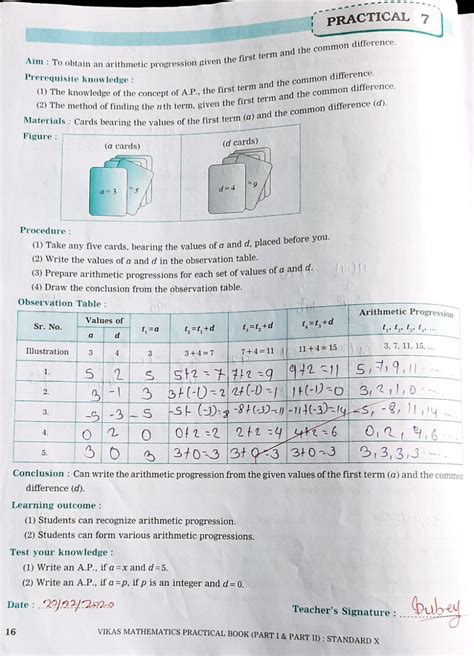 PRACTICAL 7
Aim : To obtain an arithmetic progression given the first term and the common difference.
Prerequisite knowledge :
(1) The knowledge of the concept of A.P., the first term and the common difference.
(2) The method of finding the nth term, given the first term and the common difference.
Materials : Cards bearing the values of the first term (a) and the common difference (d).
Figure :
(a cards) (d cards)
a = 3 = 5 d = 4 = 9
Procedure :
(1) Take any five cards, bearing the values of a and d, placed before you.
(2) Write the values of a and d in the observation table.
(3) Prepare arithmetic progressions for each set of values of a and d.
(4) Draw the conclusion from the observation table.
Observation Table :
Sr. No. Values of a d t₁=a t₂=t₁+d t₃=t₂+d t₄=t₃+d Arithmetic Progression t₁, t₂, t₃, t₄, ...
Illustration 3 4 3 3+4=7 7+4=11 11+4=15 3, 7, 11, 15, ...
1. 5 2 5 5+2=7 7+2=9 9+2=11 5, 7, 9, 11 ...
2. 3 -1 3 3+(-1)=2 2+(-1)=1 1+(-1)=0 3, 2, 1, 0 ...
3. -5 -3 -5 -5+(-3)=-8 -8+(-3)=-11 -11+(-3)=-14 -5, -8, 11, 14 ...
4. 0 2 0 0+2=2 2+2=4 4+2=6 0, 2, 4, 6 ...
5. 3 0 3 3+0=3 3+0=3 3+0=3 3, 3, 3, 3 ...
Conclusion : Can write the arithmetic progression from the given values of the first term (a) and the common
difference (d).
Learning outcome :
(1) Students can recognize arithmetic progression.
(2) Students can form various arithmetic progressions.
Test your knowledge :
(1) Write an A.P., if a = x and d = 5.
(2) Write an A.P., if a = p, if p is an integer and d = 0.
Date : Teacher's Signature : Dubey
16 VIKAS MATHEMATICS PRACTICAL BOOK (PART I & PART II) : STANDARD X